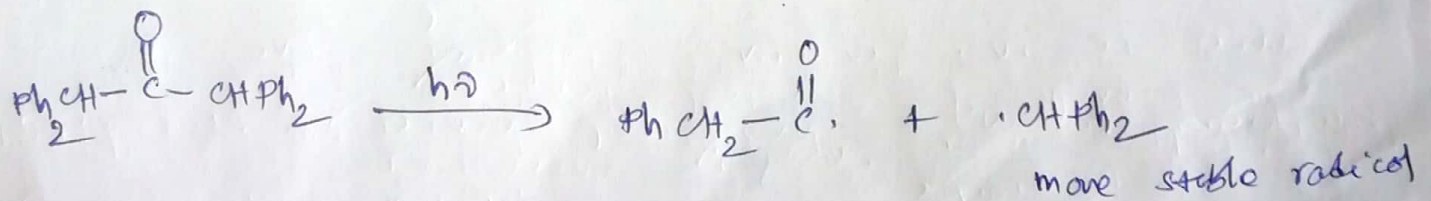 O O
Ph2CH-C-CHPh2 hν → PhCH2-C· + ·CHPh2
more stable radical